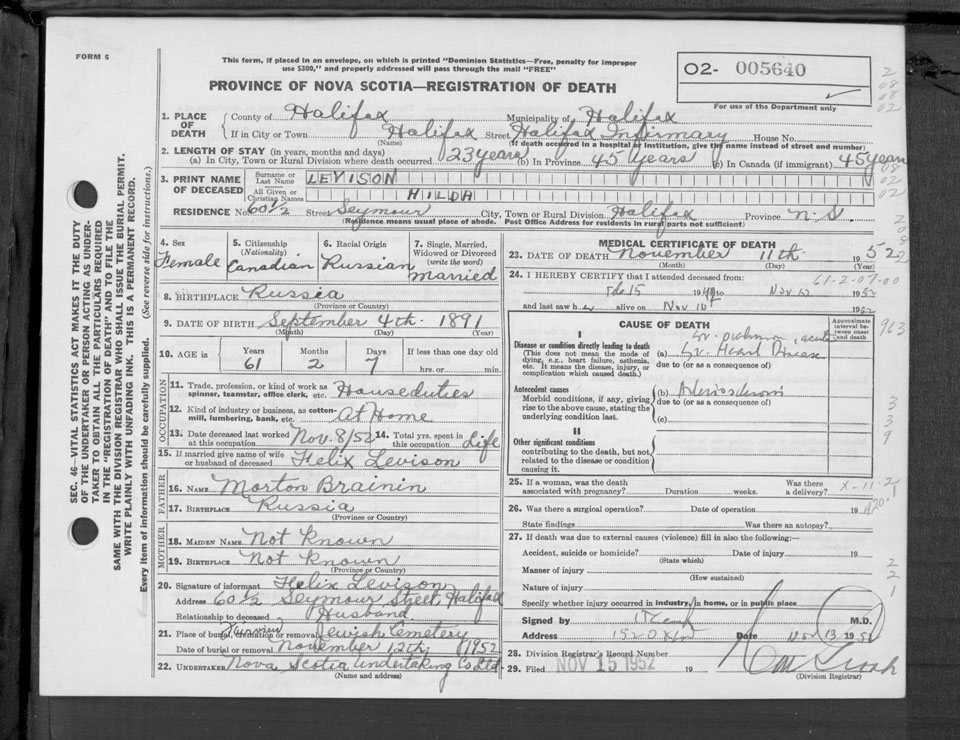 FORM 6
This form, if placed in an envelope, on which is printed "Dominion Statistics—Free, penalty for improper
use $300," and properly addressed will pass through the mail "FREE"
PROVINCE OF NOVA SCOTIA—REGISTRATION OF DEATH
O2- 005640
For use of the Department only
1. PLACE OF DEATH
County of Halifax Municipality of Halifax
If in City or Town Halifax Street Halifax Infirmary House No.
(Name) (If death occurred in a hospital or institution, give the name instead of street and number)
2. LENGTH OF STAY (in years, months and days)
(a) In City, Town or Rural Division where death occurred 23 years (b) in Province 45 years (c) in Canada (if immigrant) 45 years
3. PRINT NAME OF DECEASED
Surname or Last Name LEVISON
All Given or Christian Names HILDA
RESIDENCE No. 60½ Street Seymour City, Town or Rural Division Halifax Province N.S.
(Residence means usual place of abode. Post Office Address for residents in rural parts not sufficient)
4. Sex
Female
5. Citizenship (Nationality)
Canadian
6. Racial Origin
Russian
7. Single, Married, Widowed or Divorced (write the word)
Married
8. BIRTHPLACE Russia
(Province or Country)
9. DATE OF BIRTH September 4th 1891
(Month) (Day) (Year)
10. AGE in
Years Months Days If less than one day old
61 2 7 hrs. or min.
OCCUPATION
11. Trade, profession, or kind of work as spinner, teamster, office clerk, etc. Houseduties
12. Kind of industry or business, as cotton-mill, lumbering, bank, etc. At Home
13. Date deceased last worked at this occupation Nov. 8/52 14. Total yrs. spent in this occupation life
15. If married give name of wife or husband of deceased Felix Levison
FATHER
16. NAME Morton Brainin
17. BIRTHPLACE Russia
(Province or Country)
MOTHER
18. MAIDEN NAME Not Known
19. BIRTHPLACE Not Known
(Province or Country)
20. Signature of informant Felix Levison
Address 60½ Seymour Street, Halifax
Relationship to deceased Husband
21. Place of burial, cremation or removal Jewish Cemetery
Date of burial or removal November 12th 1952
22. UNDERTAKER Nova Scotia Undertaking Co Ltd.
(Name and address)
MEDICAL CERTIFICATE OF DEATH
23. DATE OF DEATH November 11th 1952
(Month) (Day) (Year)
24. I HEREBY CERTIFY that I attended deceased from:
61-2-07-00
15 19 to Nov 1952
and last saw h alive on Nov 10 1952
CAUSE OF DEATH
Approximate interval between onset and death
I
Disease or condition directly leading to death
(This does not mean the mode of dying, e.g., heart failure, asthenia, etc. It means the disease, injury, or complication which caused death.)
(a) Heart Disease
due to (or as a consequence of)
963
Antecedent causes
Morbid conditions, if any, giving rise to the above cause, stating the underlying condition last.
(b)
due to (or as a consequence of)
(c)
II
Other significant conditions
contributing to the death, but not related to the disease or condition causing it.
25. If a woman, was the death associated with pregnancy? Duration weeks. Was there a delivery?
26. Was there a surgical operation? Date of operation 19
State findings Was there an autopsy?
27. If death was due to external causes (violence) fill in also the following:—
Accident, suicide or homicide? Date of injury 19
(State which)
Manner of injury
(How sustained)
Nature of injury
Specify whether injury occurred in industry, in home, or in public place
Signed by M.D.
Address Date Nov 13 1952
28. Division Registrar's Record Number
29. Filed NOV 15 1952 19
(Division Registrar)
SEC. 46—VITAL STATISTICS ACT MAKES IT THE DUTY
OF THE UNDERTAKER OR PERSON ACTING AS UNDER-
TAKER TO OBTAIN ALL THE PARTICULARS REQUIRED
IN THE "REGISTRATION OF DEATH" AND TO FILE THE
SAME WITH THE DIVISION REGISTRAR WHO SHALL ISSUE THE BURIAL PERMIT.
WRITE PLAINLY WITH UNFADING INK. THIS IS A PERMANENT RECORD.
Every item of information should be carefully supplied. (See reverse side for instructions.)